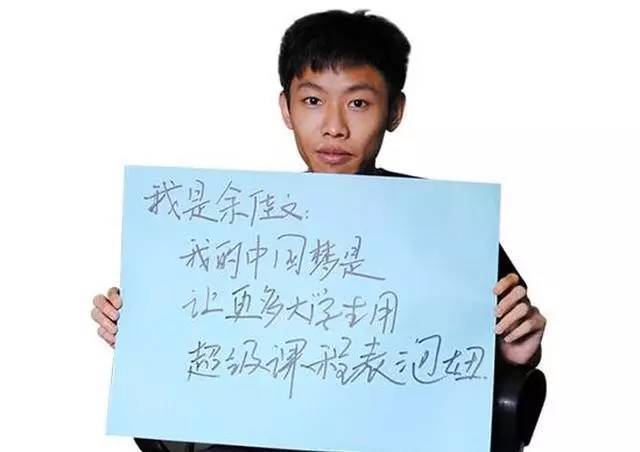 我是余佳文:
我的中国梦是
让更多大学生用
超级课程表泡妞.